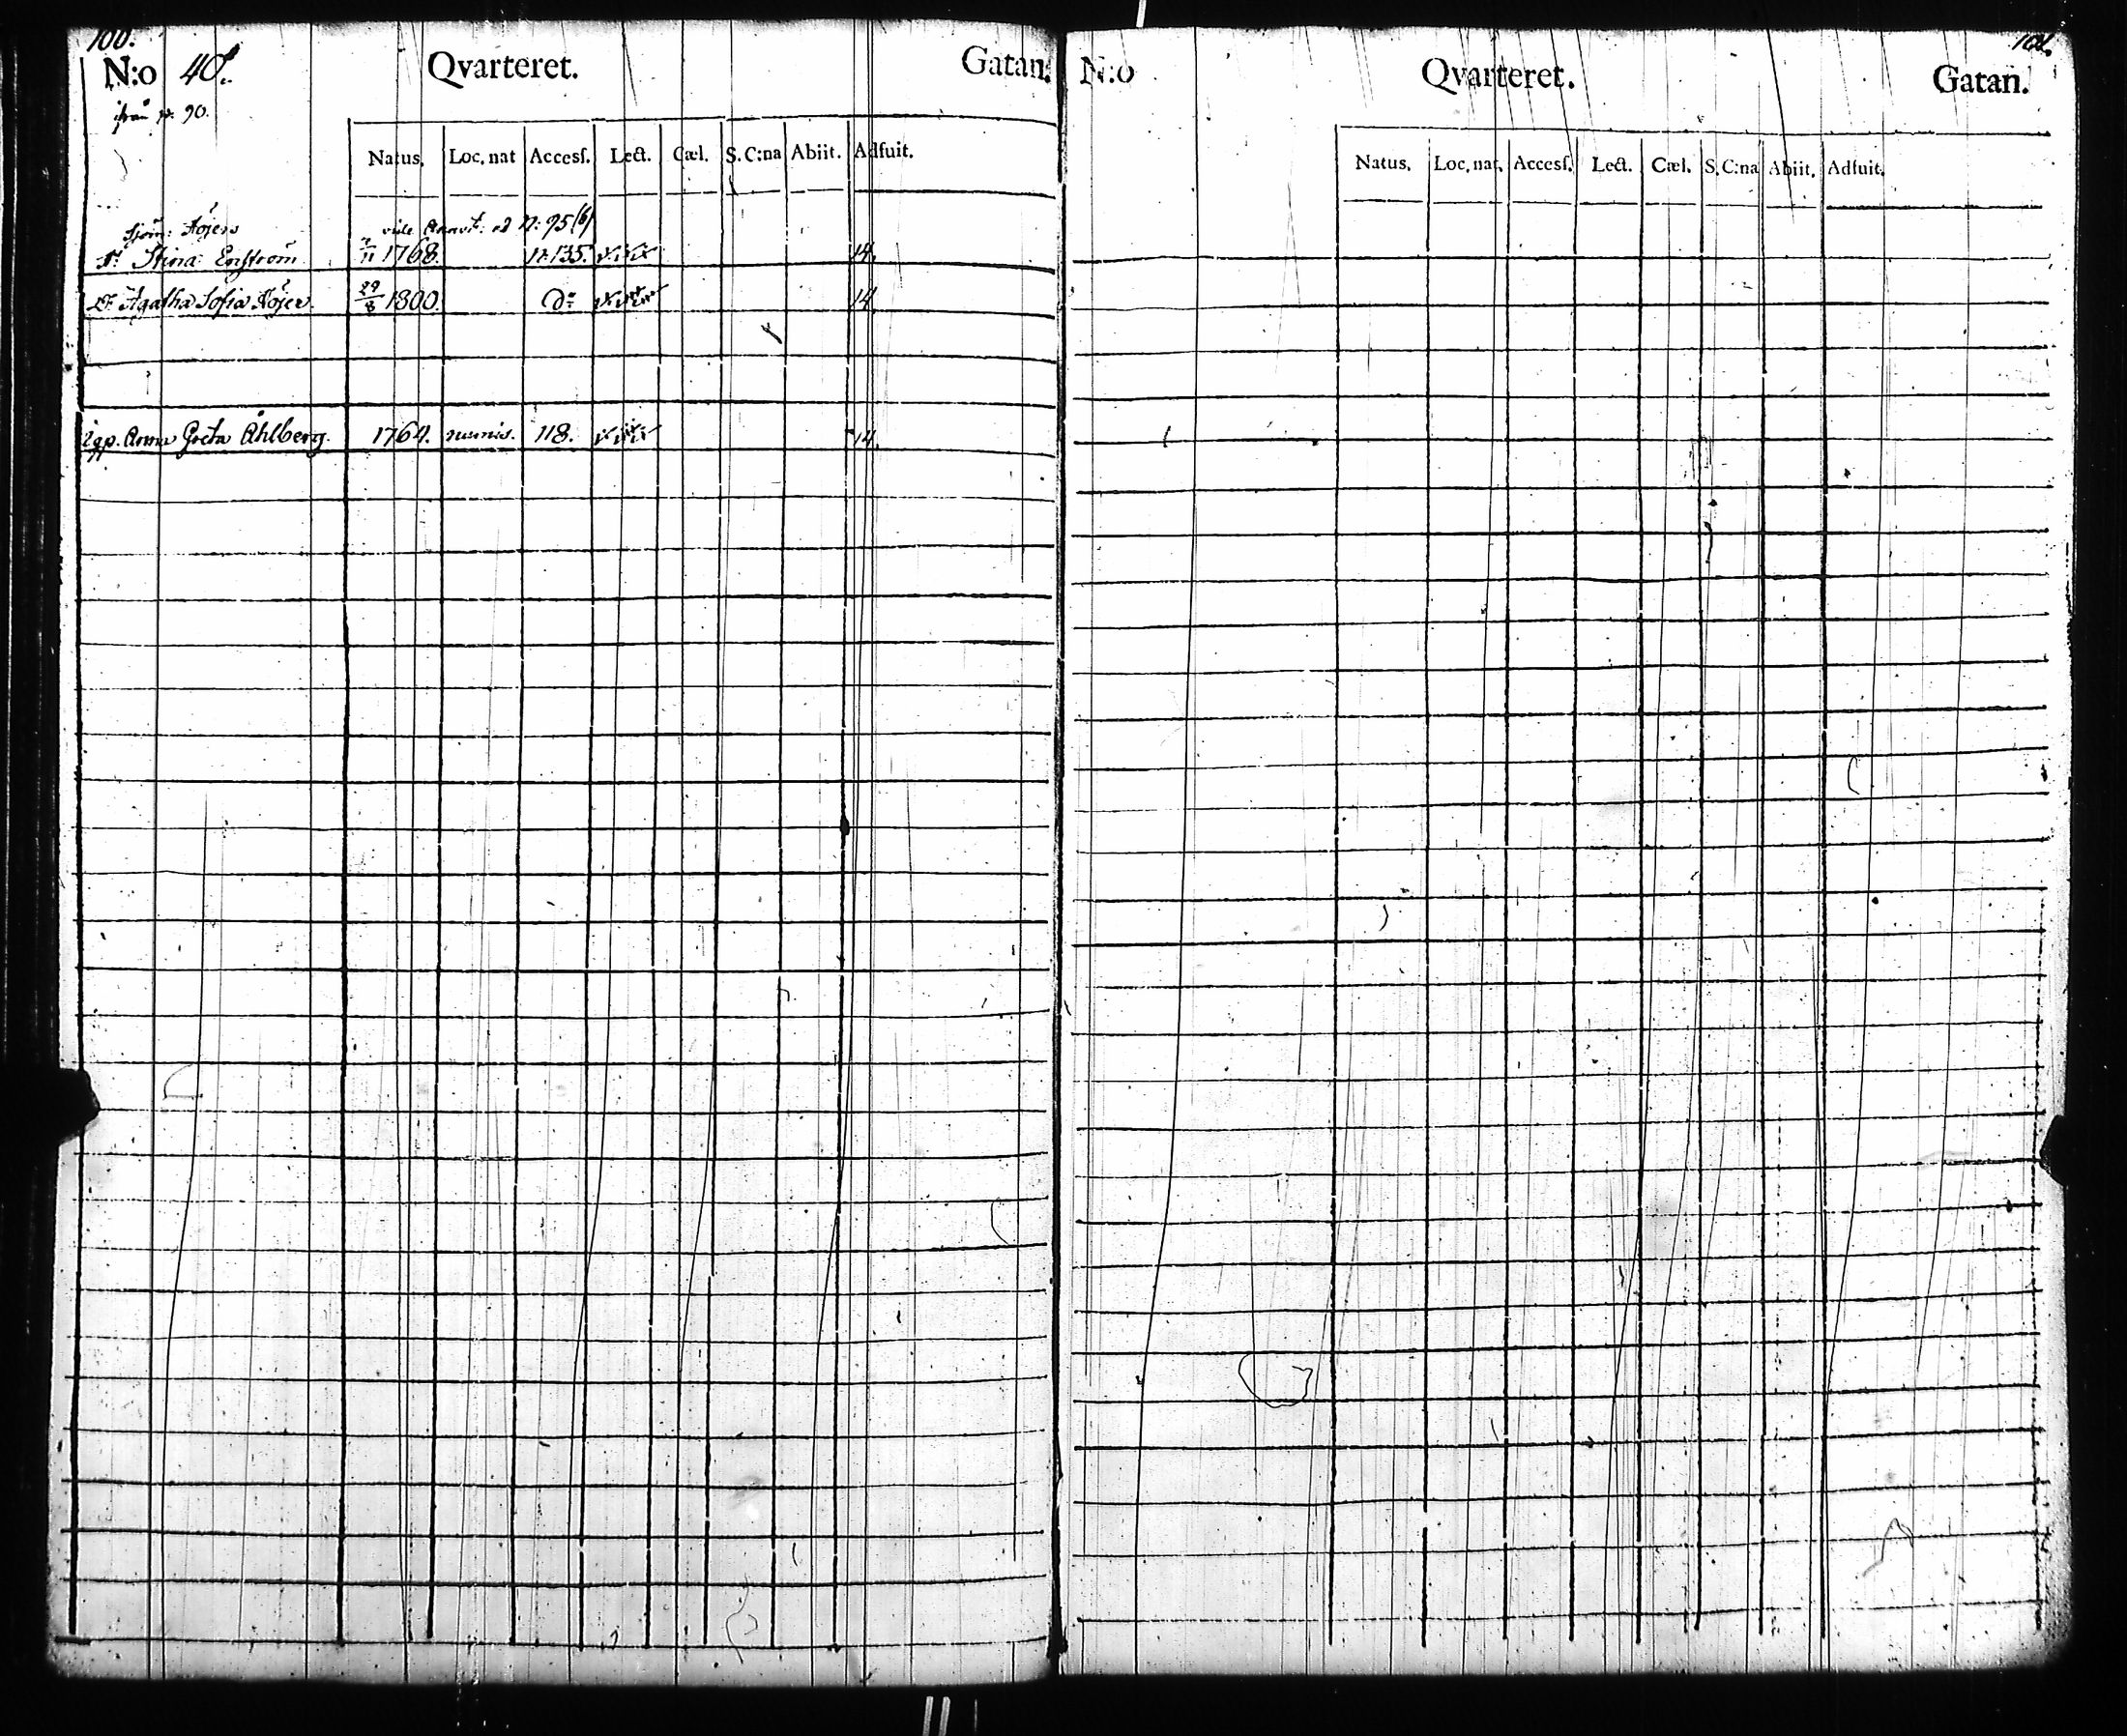 100.
N:o 40. Qvarteret. Gatan.
ifrån p. 90.
Natus. Loc. nat Accesſ. Lect. Cæl. S. C:na Abiit. Adfuit.
Sjöm: Höjers vide ad N: 95
Stina Enström 1768. 135. 14.
Dr Agatha Sofia Höjer. 29/8 1800. Do 14
igp. Anna Greta Åhlberg. 1764. 118. 14.
N:o Qvarteret. Gatan.
Natus. Loc. nat. Accesſ. Lect. Cæl. S. C:na Abiit. Adfuit.